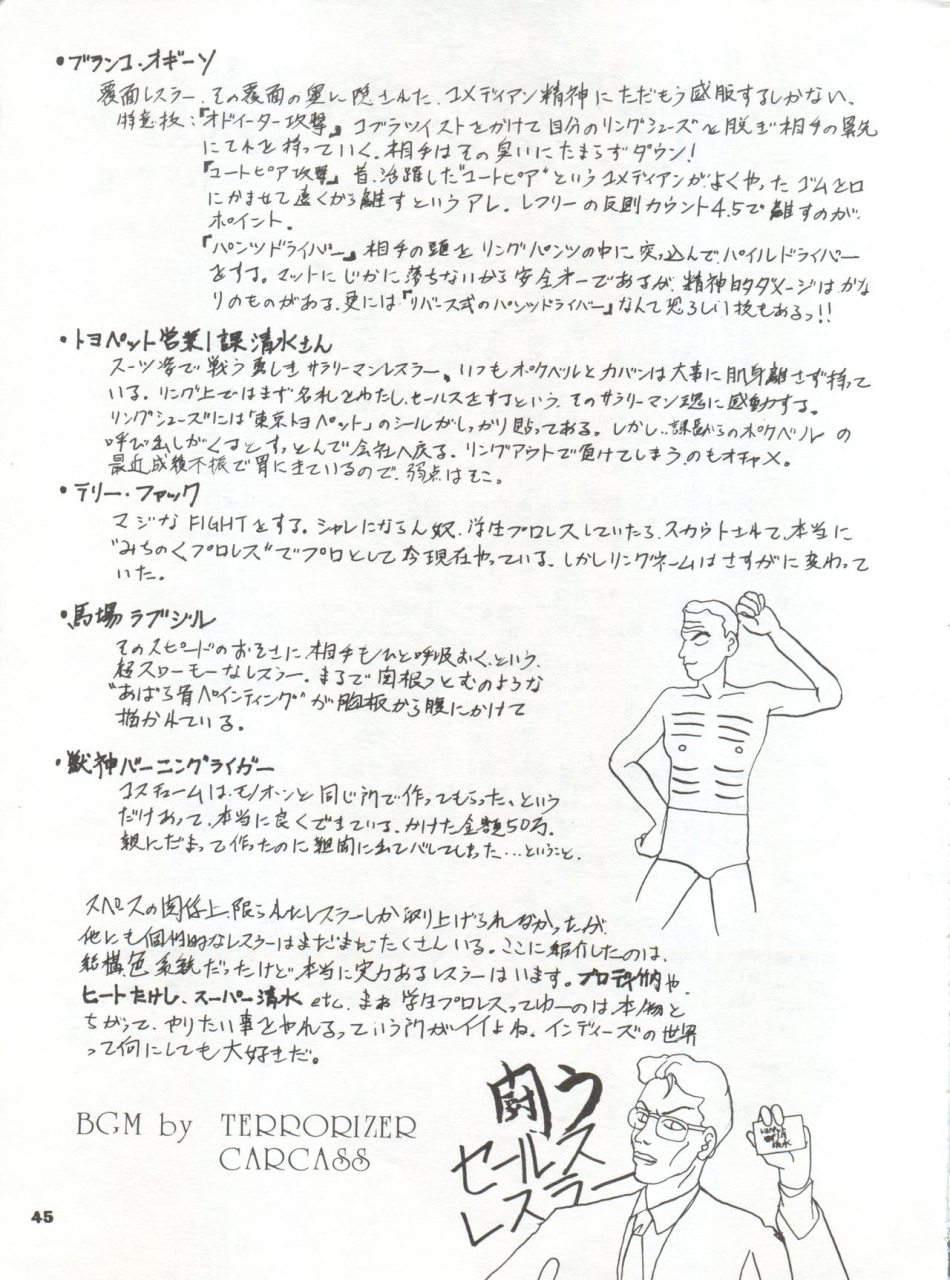 •ブランコ・オギーソ
覆面レスラー、その覆面の奥に隠された、コメディアン精神にただもう感服するしかない。
得意技:『オドイーター攻撃』コブラツイストをかけて自分のリングシューズを脱ぎ相手の鼻先
にそれを持っていく。相手はその臭いにたまらずダウン!
『ユートピア攻撃』昔、活躍した"ユートピア"というコメディアンがよくやったゴムを口
にかませて遠くから離すというアレ。レフリーの反則カウント4.5で離すのが
ポイント。
『パンツドライバー』相手の頭をリングパンツの中に突っ込んでパイルドライバー
をする。マットにじかに落ちないから安全オーであるが、精神的ダメージはかな
りのものがある。更には『リバース式のパンツドライバー』なんて恐ろしい技もあるっ!!
•トヨペット営業1課清水さん
スーツ姿で戦う哀しきサラリーマンレスラー。いつもポケベルとカバンは大事に肌身離さず持って
いる。リング上ではまず名札をわたし、セールスをするという、そのサラリーマン魂に感動する。
リングシューズには「東京トヨペット」のシールがしっかり貼ってある。しかし、課長からのポケベルの
呼び出しがくるとすっとんで会社へ戻る。リングアウトで負けてしまうのもオチャメ。
最近成績不振で胃にきているので、弱点はそこ。
•テリー・ファック
マジなFIGHTをする。シャレにならん奴。学生プロレスしていたら、スカウトされて、本当に
"みちのくプロレス"でプロとして今現在やっている。しかしリングネームはさすがに変わって
いた。
•馬場ラブジル
そのスピードのおそさに、相手もひと呼吸おく、という
超スローモーなレスラー。まるで関根つとむのような
"あばら骨ペインティング"が胸板から腹にかけて
描かれている。
•獣神バーニングライガー
コスチュームは、モノホンと同じ所で作ってもらった、という
だけあって、本当に良くできている。かけた金額50万。
親にだまって作ったのに新聞に出てバレてしまった…ということ。
スペースの関係上、限られたレスラーしか取り上げられなかったが
他にも個性的なレスラーはまだまだたくさんいる。ここに紹介したのは、
結構、色系統だったけど、本当に実力あるレスラーはいます。プロディ竹内や、
ヒートたけし、スーパー清水 etc. まぁ学生プロレスってゆーのは本物と
ちがって、やりたい事をやれるっていう所がイイよね。インディーズの世界
って何にしても大好きだ。
BGM by TERRORIZER
CARCASS
闘う
セールス
レスラー
清水
45